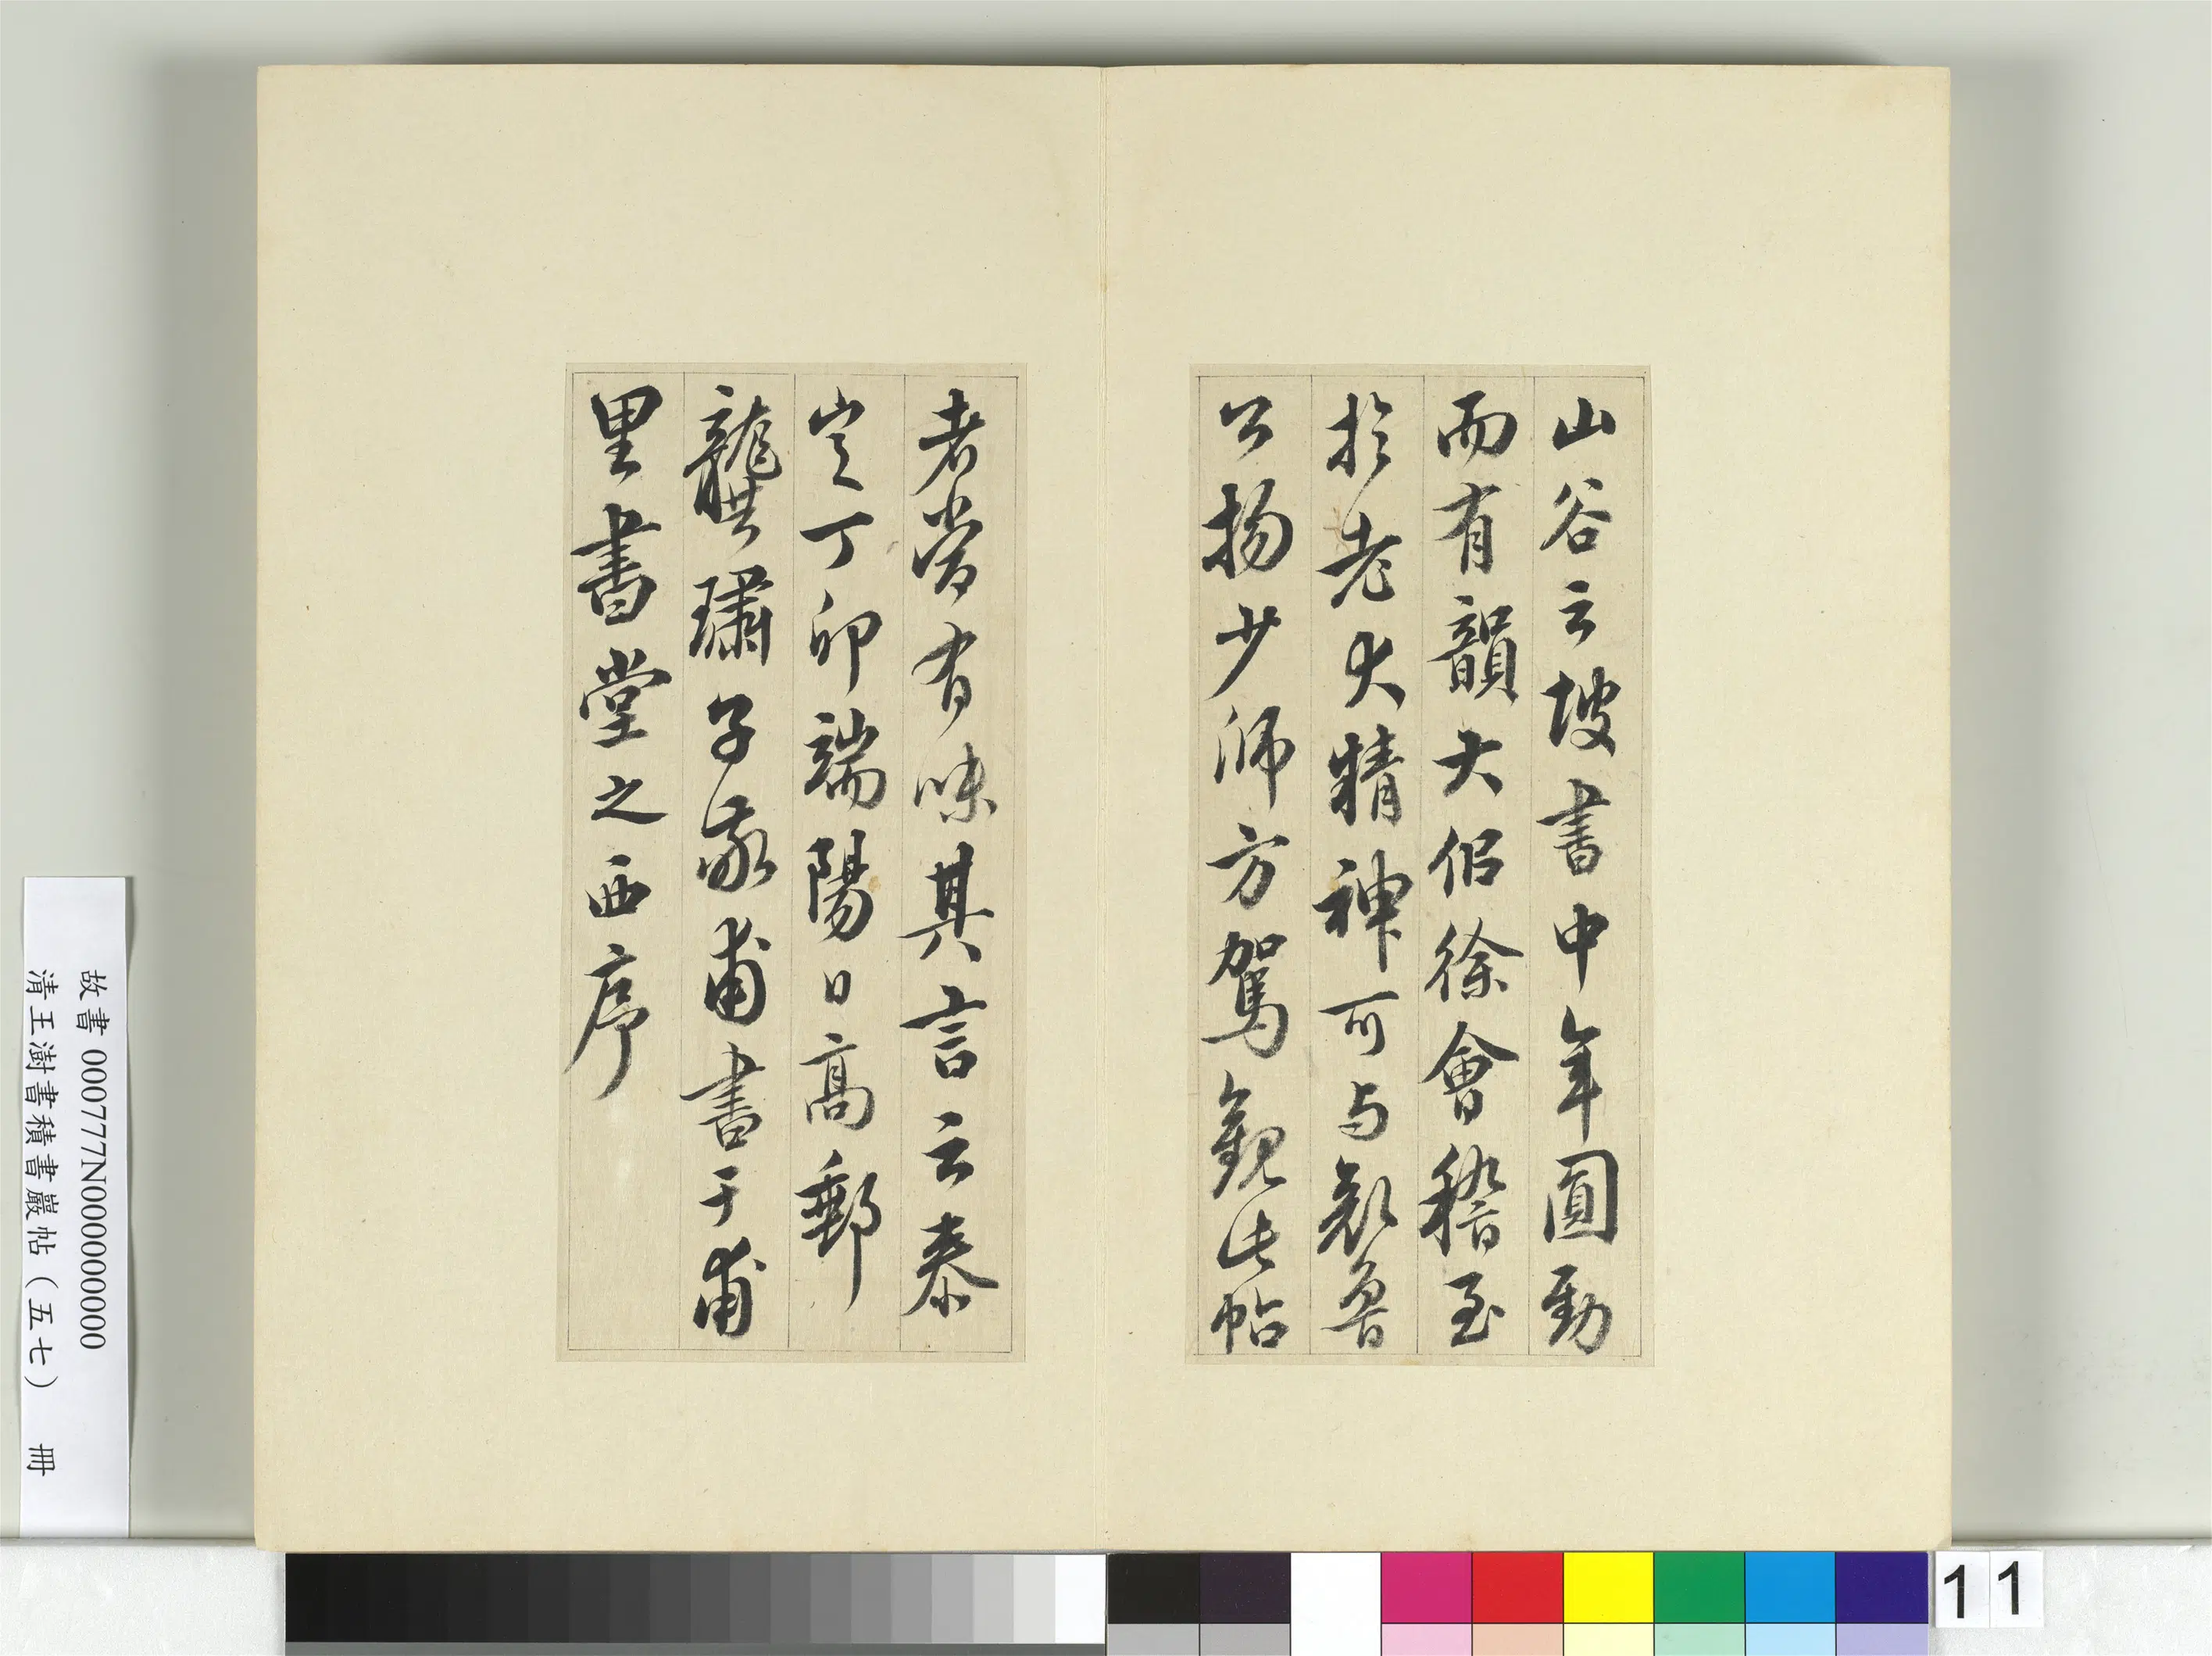 山谷云坡書中年圓勁
而有韻大侣徐會稽至
於老大精神可与顔魯
公揚少師方駕觀此帖
者當有味其言云泰
定丁卯端陽日高郵
龔璛子敬甫書于甫
里書堂之西序
故書 000777N000000000
清王澍書積書巖帖（五七） 冊
11